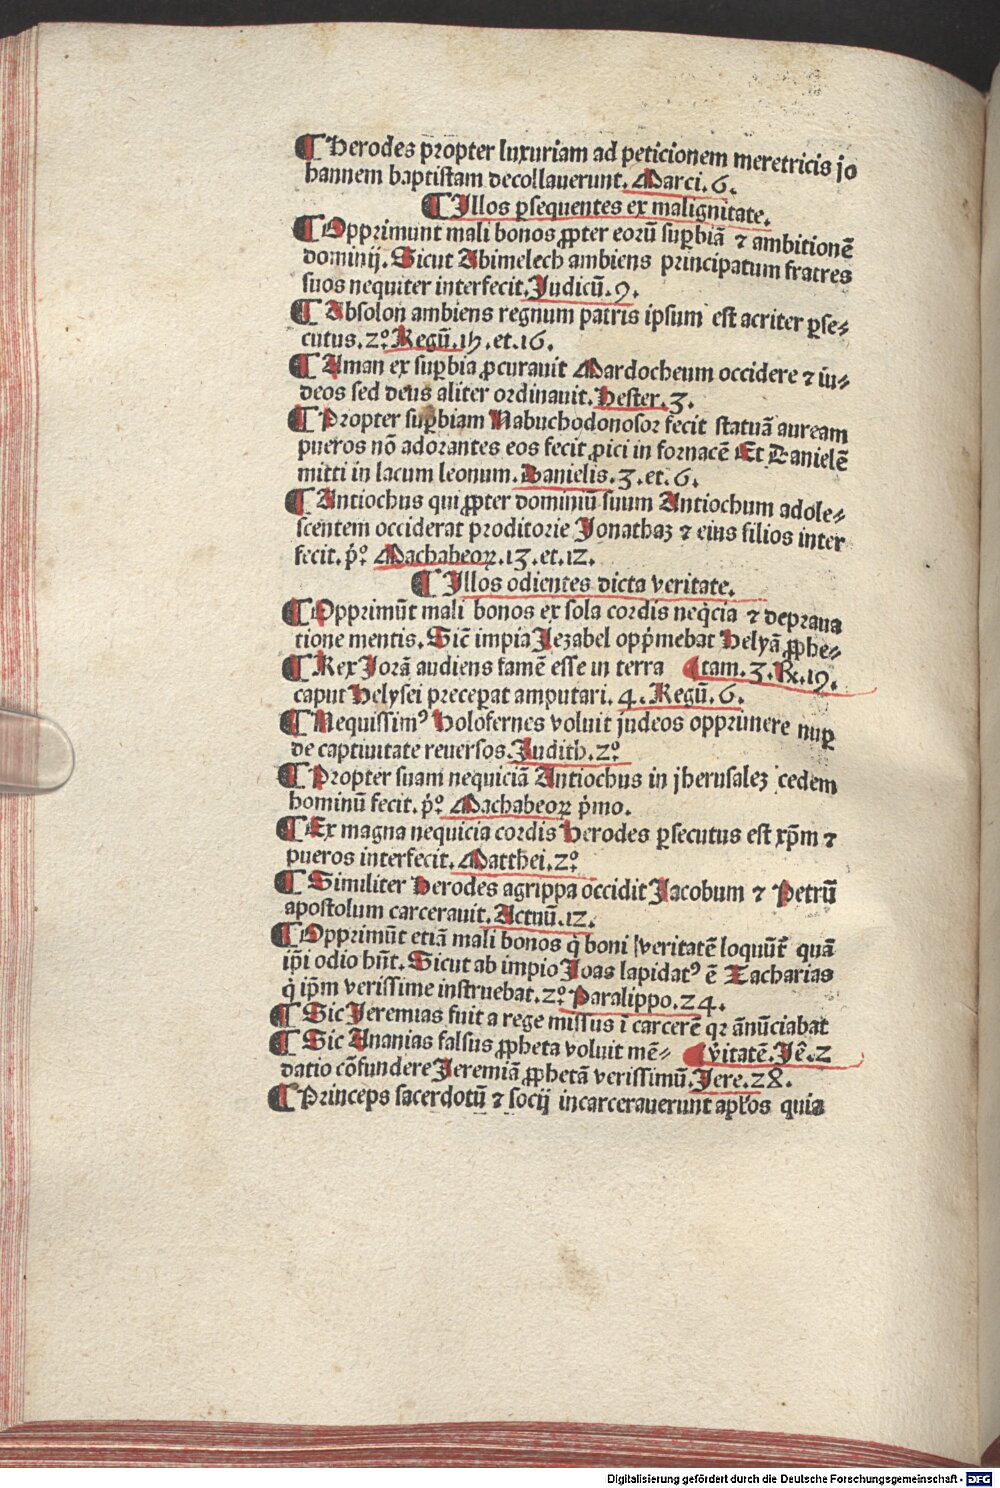 ¶ Herodes propter luxuriam ad peticionem meretricis jo
hannem baptistam decollauerunt. Marci. 6.
¶ Illos ꝑsequentes ex malignitate.
¶ Opprimunt mali bonos ꝓpter eorū suꝑbiā ⁊ ambitionē
dominij. Sicut Abimelech ambiens principatum fratres
suos nequiter interfecit. Judicū. 9.
¶ Absolon ambiens regnum patris ipsum est acriter ꝑse⸗
cutus. 2° Regū. 15. et. 16.
¶ Aman ex suꝑbia ꝓcurauit Mardocheum occidere ⁊ iu⸗
deos sed deus aliter ordinauit. Hester. 3.
¶ Propter suꝑbiam Nabuchodonosor fecit statuā auream
pueros nō adorantes eos fecit ꝓici in fornacē Et Danielē
mitti in lacum leonum. Danielis. 3. et. 6.
¶ Antiochus qui ꝓpter dominiū suum Antiochum adole⸗
scentem occiderat proditorie Jonathaz ⁊ eius filios inter
fecit. p̄° Machabeoꝝ. 13. et. 12.
¶ Illos odientes dicta veritate.
¶ Opprimūt mali bonos ex sola cordis neq̄cia ⁊ depraua
tione mentis. Sic̄ impia Jezabel opp̄mebat Helyā ꝓphe⸗
¶ Rex Jorā audiens famē esse in terra ¶ tam. 3. Rx. 19.
caput Helysei preceꝑat amputari. 4. Regū. 6.
¶ Nequissimꝰ Holofernes voluit judeos opprimere nuꝑ
de captiuitate reuersos. Judith. 2°
¶ Propter suam nequiciā Antiochus in jherusalez cedem
hominū fecit. p̄° Machabeoꝝ p̄mo.
¶ Ex magna nequicia cordis Herodes ꝑsecutus est xp̄m ⁊
pueros interfecit. Matthei. 2°
¶ Similiter Herodes agrippa occidit Jacobum ⁊ Petrū
apostolum carcerauit. Actuū. 12.
¶ Opprimūt etiā mali bonos q̄ boni veritatē loquūt᷑ quā
ip̄i odio hn̄t. Sicut ab impio Joas lapidatꝰ ē Zacharias
q̄ ip̄m verissime instruebat. 2° Paralippo. 24.
¶ Sic Jeremias fuit a rege missus ī carcerē qꝛ ānūciabat
¶ Sic Ananias falsus ꝓpheta voluit mē⸗ ¶ v̄itatē. Jē. 2
datio cōfundere Jeremiā ꝓphetā verissimū. Jere. 28.
¶ Princeps sacerdotū ⁊ socij incarcerauerunt apl̄os quia
Digitalisierung gefördert durch die Deutsche Forschungsgemeinschaft - DFG